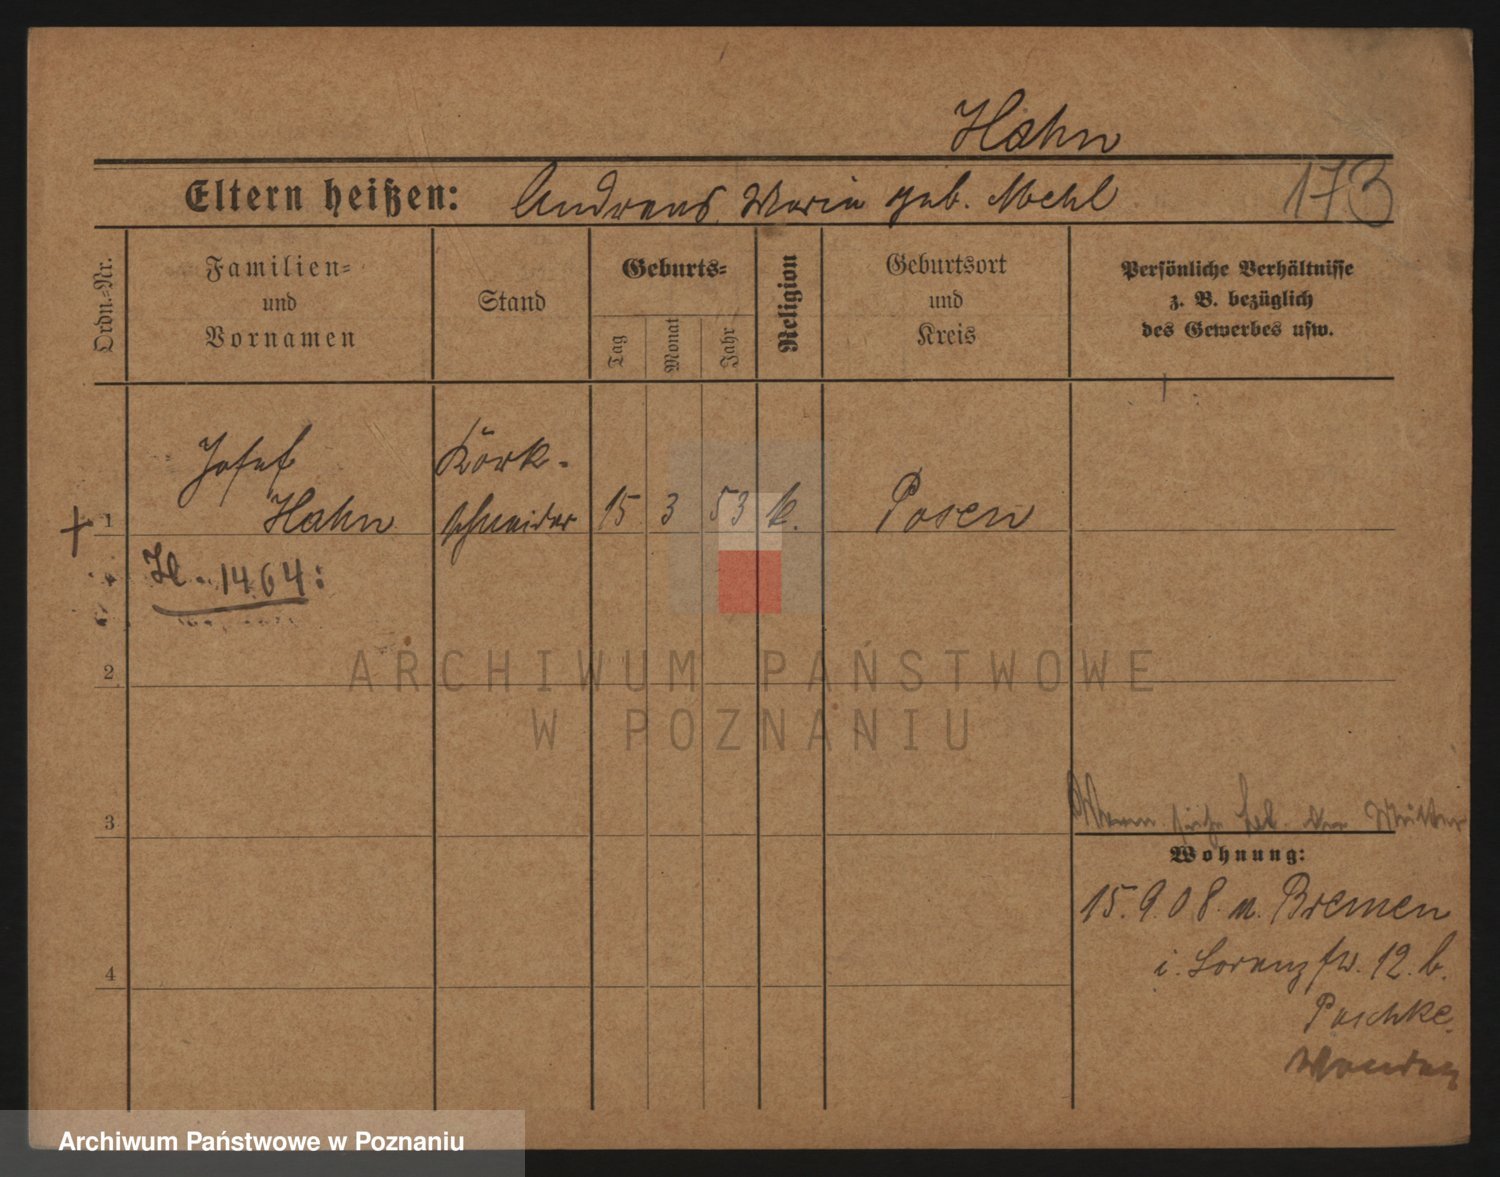 Hahn
Eltern heißen: Andreas, Maria geb. Mehl 173
Ordn.-Nr.
Familien- und Vornamen
Stand
Geburts-
Tag
Monat
Jahr
Religion
Geburtsort und Kreis
Persönliche Verhältnisse
z. B. bezüglich
des Gewerbes usw.
Josef Körk-
1 Hahn schneider 15 3 53 k. Posen
H. 1464:
2
3
der Mutter
Wohnung:
15.9.08. n. Bremen
4
i. Lorenzstr. 12. b.
Paschke.
ARCHIWUM PAŃSTWOWE
W POZNANIU
Archiwum Państwowe w Poznaniu